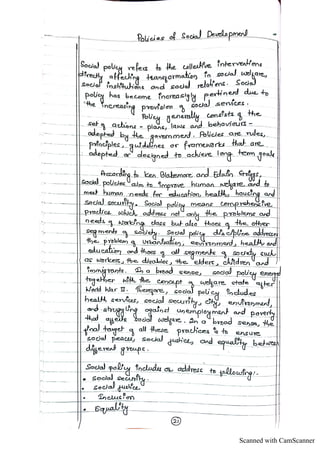 Policies of Social Development
Social policy refers to the collective interventions
directly affecting transformation in social welfare,
social institutions and social relations. Social
policy has become increasingly pertinent due to
the increasing provision of social services.
Policy generally consists of the
set of actions - plans, laws and behaviours -
adopted by the government. Policies are rules,
principles, guidelines or frameworks that are
adopted or designed to achieve long term goals
According to Ken Blakemore and Edwin Griggs,
Social policies aim to improve human welfare and to
meet human needs for education, health, housing and
social security. Social policy means comprehensive
practice which address not only the problems and
needs of working class but also those of the other
segments of society. Social policy discipline address
the problem of urbanisation, environment, health and
education and those of all segments of society such
as workers, the disables, the elders, children and
immigrants. In a broad sense, social policy emerged
together with the concept of welfare state after
World War II. Therefore, social policy includes
health services, social security, city, environment,
and struggling against unemployment and poverty
that affects social welfare. In a broad sense, the
final target of all these practices is to ensure
social peace, social justice, and equality between
different groups.
Social policy includes or address to following:.
• social security.
• social justice
• Inclusion
• Equality
21
Scanned with CamScanner